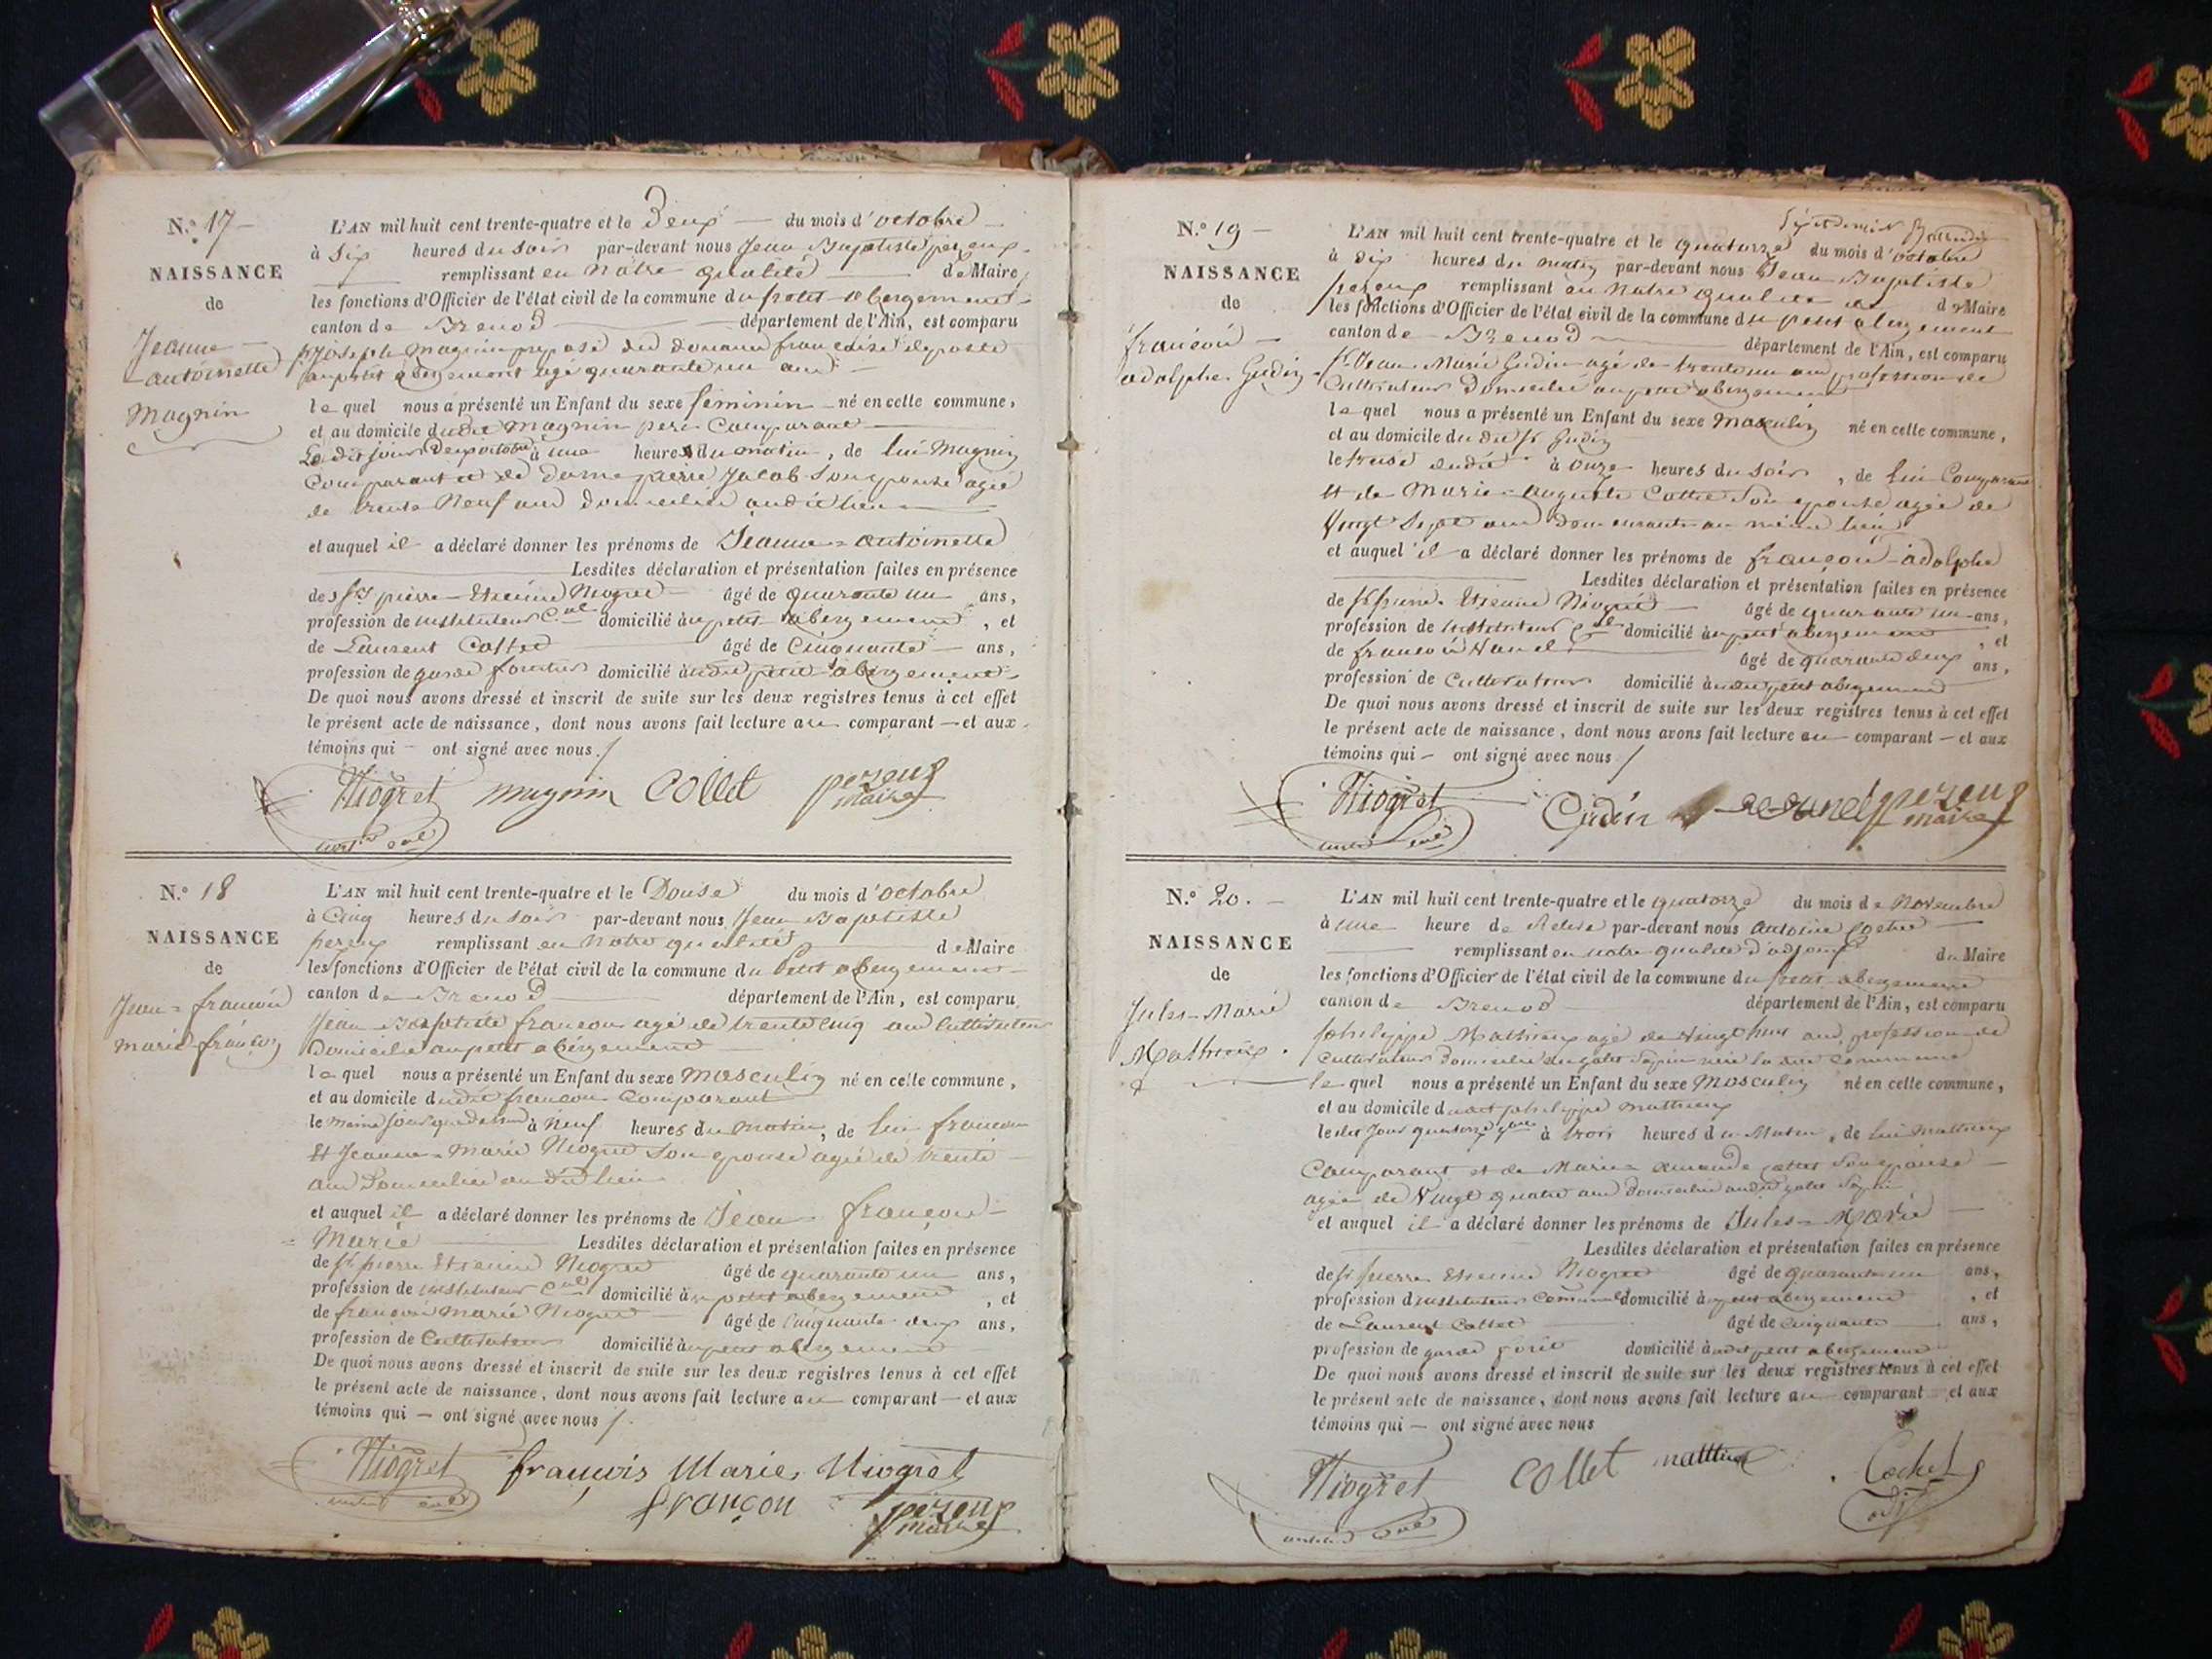 N.º 17
NAISSANCE
de
Jeanne
antoinette
Magnin
L'AN mil huit cent trente-quatre et le Deux du mois d'octobre
à Six heures du soir par-devant nous Jean Baptiste perzeux
remplissant en Notre qualité de Maire
les fonctions d'Officier de l'état civil de la commune du petit abergement
canton de Brenod département de l'Ain, est comparu
Joseph Magnin preposé des douanes francaise de poste
au petit abergement agé quarante un ans
le quel nous a présenté un Enfant du sexe feminin né en cette commune,
et au domicile dudit Magnin pere Comparant
Le dit jour Deux octobre à une heures du matin, de lui Magnin
Comparant et de Dame pierre Jacob Son epouse agée
de trente Neuf ans domiciliés audit lieu
et auquel il a déclaré donner les prénoms de Jeanne-antoinette
Lesdites déclaration et présentation faites en présence
des Srs pierre Etienne Niogret âgé de quarante un ans,
profession de instituteur Cal domicilié au petit abergement, et
de Laurent Collet âgé de Cinquante ans,
profession de garde forestier domicilié à audit petit abergement
De quoi nous avons dressé et inscrit de suite sur les deux registres tenus à cet effet
le présent acte de naissance, dont nous avons fait lecture au comparant et aux
témoins qui ont signé avec nous.
Niogret magnin Collet perzeux
maire
N.º 18
NAISSANCE
de
Jean-francois
marie françon
L'AN mil huit cent trente-quatre et le Douse du mois d'octobre
à Cinq heures du soir par-devant nous Jean Baptiste
perzeux remplissant en Notre qualité de Maire
les fonctions d'Officier de l'état civil de la commune du Petit abergement
canton de Brenod département de l'Ain, est comparu
Jean Baptiste francon agé de trente cinq ans Cultivateur
Domicilié au petit abergement
le quel nous a présenté un Enfant du sexe Masculin né en cette commune,
et au domicile dudit francon Comparant
le meme jour que dessus à Neuf heures du matin, de lui francon
Et Jeanne-Marie Niogret Son epouse agée de trente
ans Domiciliée au dit lieu
et auquel il a déclaré donner les prénoms de Jean francois
Marie Lesdites déclaration et présentation faites en présence
de Sr pierre Etienne Niogret âgé de quarante un ans,
profession de instituteur Cal domicilié au petit abergement, et
de francois marie Niogret âgé de Cinquante deux ans,
profession de Cultivateur domicilié au petit abergement
De quoi nous avons dressé et inscrit de suite sur les deux registres tenus à cet effet
le présent acte de naissance, dont nous avons fait lecture au comparant et aux
témoins qui ont signé avec nous
Niogret françois Marie Niogret
françon perzeux
maire
N.º 19
NAISSANCE
de
francois
adolphe Gudin
L'AN mil huit cent trente-quatre et le quatorze du mois d'octobre
à dix heures du matin par-devant nous Jean Baptiste
perzeux remplissant en Notre qualité de Maire
les fonctions d'Officier de l'état civil de la commune du petit abergement
canton de Brenod département de l'Ain, est comparu
Sr Jean Marie Gudin agé de trente un ans profession de
Cultivateur Domicilié au petit abergement
le quel nous a présenté un Enfant du sexe Masculin né en cette commune,
et au domicile du dit Sr Gudin
le treise dudit à onze heures du soir, de lui Comparant
Et de Marie-auguste Collet Son epouse agée de
Vingt Sept ans Demeurante au même lieu
et auquel il a déclaré donner les prénoms de francois-adolphe
Lesdites déclaration et présentation faites en présence
de Sr pierre Etienne Niogret âgé de quarante un ans,
profession de instituteur Cal domicilié au petit abergement, et
de francois âgé de quarante deux ans,
profession de Cultivateur domicilié à audit petit abergement
De quoi nous avons dressé et inscrit de suite sur les deux registres tenus à cet effet
le présent acte de naissance, dont nous avons fait lecture au comparant et aux
témoins qui ont signé avec nous
Niogret Gudin perzeux
maire
N.º 20.
NAISSANCE
de
Jules-Marie
Mathieux
L'AN mil huit cent trente-quatre et le quatorze du mois de Novembre
à une heure de Relevé par-devant nous Antoine Cochet
remplissant en notre qualité d'adjoint du Maire
les fonctions d'Officier de l'état civil de la commune du petit abergement
canton de Brenod département de l'Ain, est comparu
philippe Mathieux agé de Vingt huit ans profession de
Cultivateur Domicilié
le quel nous a présenté un Enfant du sexe Masculin né en cette commune,
et au domicile dudit philippe Mathieux
le dit Jour quatorze 9bre à trois heures du Matin, de lui Mathieux
Comparant et de Marie amande Collet Son epouse
agée de Vingt quatre ans Domiciliée
et auquel il a déclaré donner les prénoms de Jules-Marie
Lesdites déclaration et présentation faites en présence
de Sr pierre Etienne Niogret âgé de quarante un ans,
profession d'instituteur Communal domicilié au petit abergement, et
de Laurent Collet âgé de cinquante ans,
profession de garde foret domicilié à audit petit abergement
De quoi nous avons dressé et inscrit de suite sur les deux registres tenus à cet effet
le présent acte de naissance, dont nous avons fait lecture au comparant et aux
témoins qui ont signé avec nous
Niogret Collet Cochet
adj